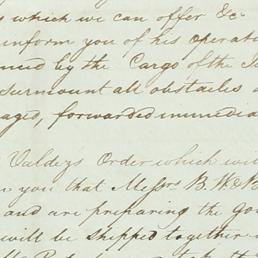 which we can offer &c
inform you of his operati
by the Cargo of the
surmount all obstacles
aged, forwarded immedia
Valdez's Order which wi
you that Messrs B. W. & B
and are preparing the goo
will be shipped together